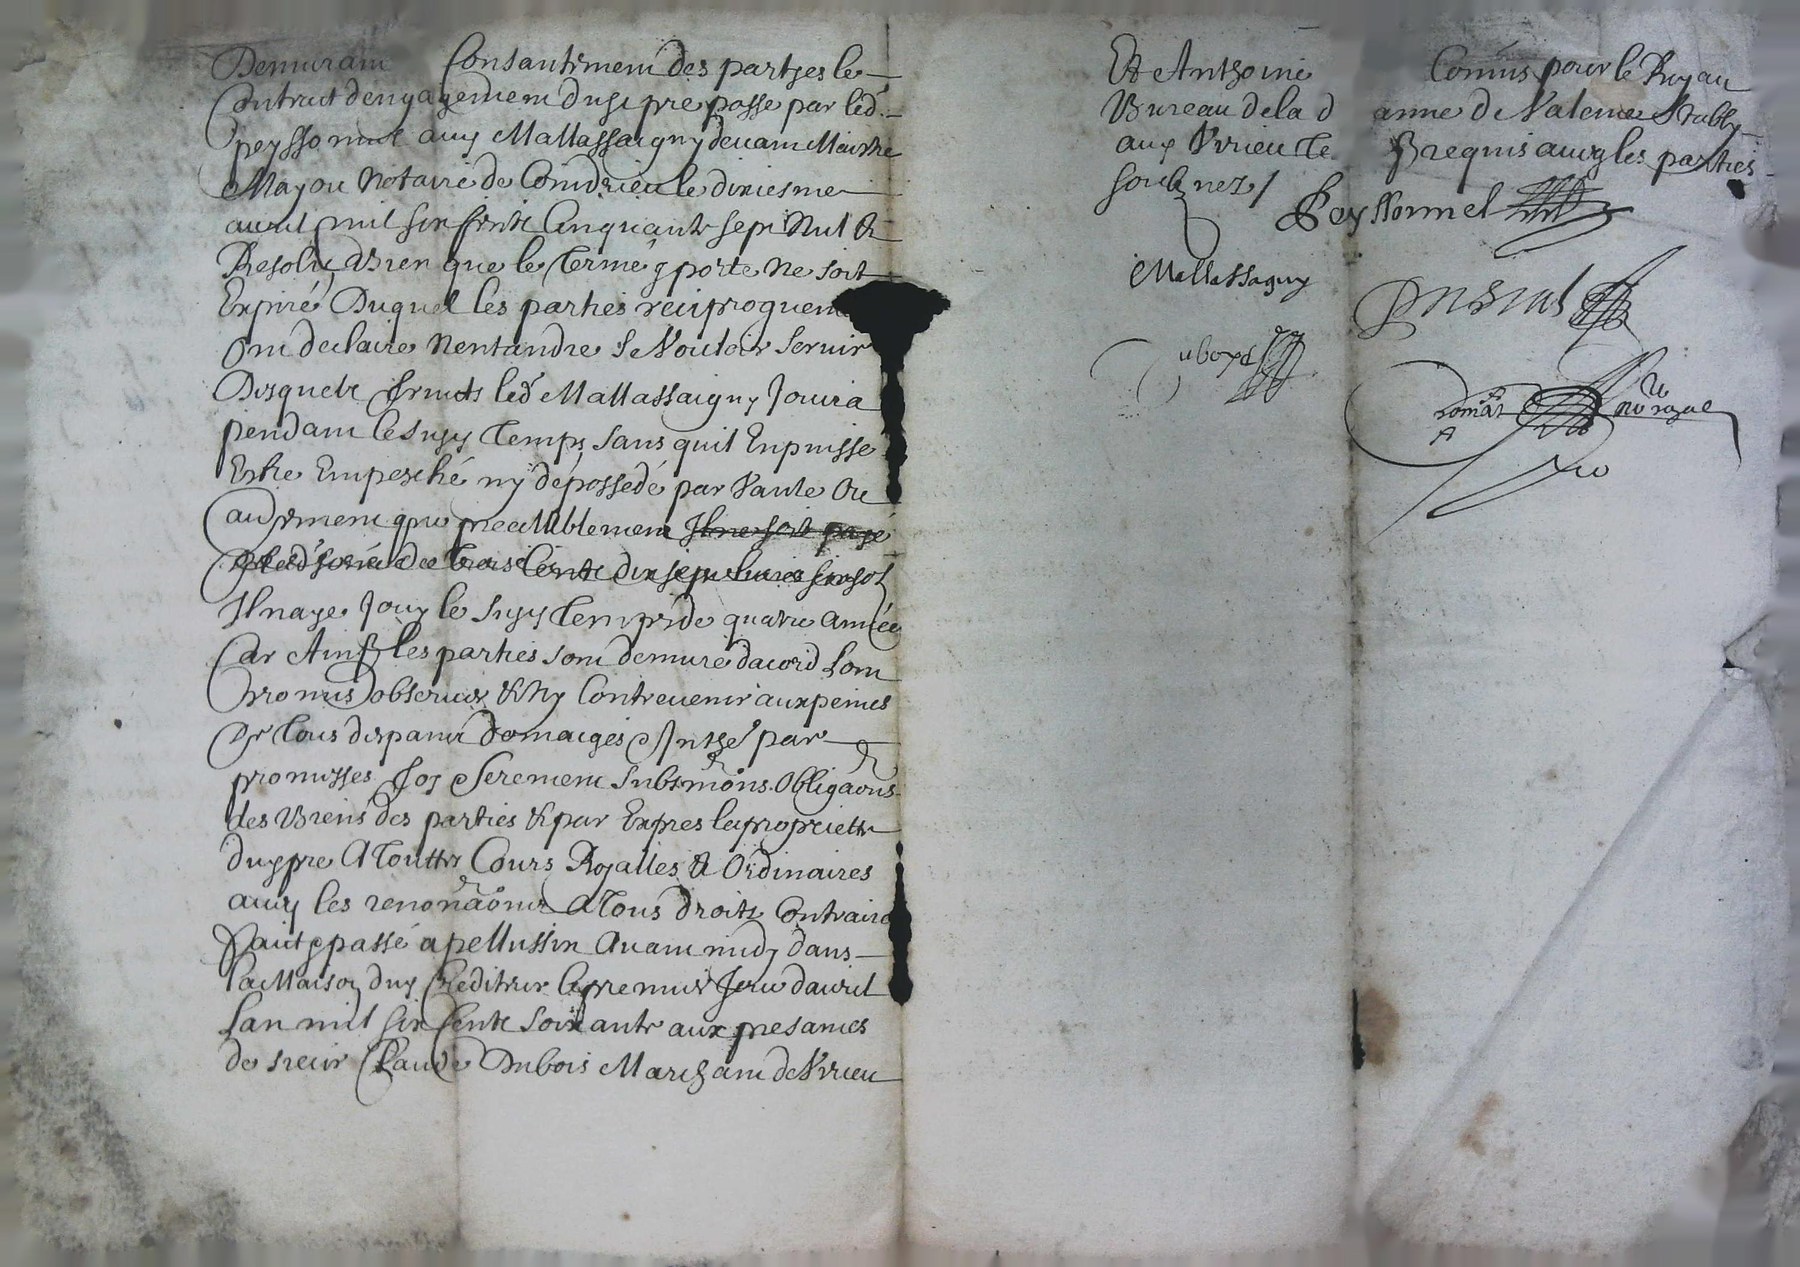 Demurant Consantement des partyes le
Contract dengagement dusd pre passe par led
peyssonnel aud Mallassaigny devant Maistre
Mayou Notaire de Coindrieu le dixiesme
avril mil six cents Cinquante sept Nul &
Resolu Bien que le Terme y porte Ne soit
Expiré Duquel les parties reciproquem
Ont declaire Nentandre Se Vouloir Servir
Desquels fruits led Mallassaigny Jouira
pendant le susd Temps sans quil En puisse
Estre Empesché ny dépossedé par Vante Ou
aultrement que prealablement Il ne soit payé
de lad somme de Trois Cents dix sept livres six sol
Il naye Jouy le susd Temps de quatre année
Car Ainsy les parties sont demuré dacord Lont
promis observer & Ny Contrevenir aux peines
De Tous despans domaiges & Inthe par
promesses foy & Serement Submons Obligaons
des Biens des parties & par Expres la propriette
dud pre A Touttes Cours Royalles & Ordinaires
avec les renonaons A Tous droits Contraire
Faict & passé a pellussin Avant midy dans
la Maison dud Crediteur le premier Jour davril
Lan mil six Cents Soixante aux presances
de sieur Claude Dubois Marchant de Virieu
Et Anthoine Comis pour le Roy au
Bureau de la d anne de Valence Estably
aud Virieu Te requis avec les parties
soubznez /
Peyssonnel
Mallassagny
uboys
nore royal